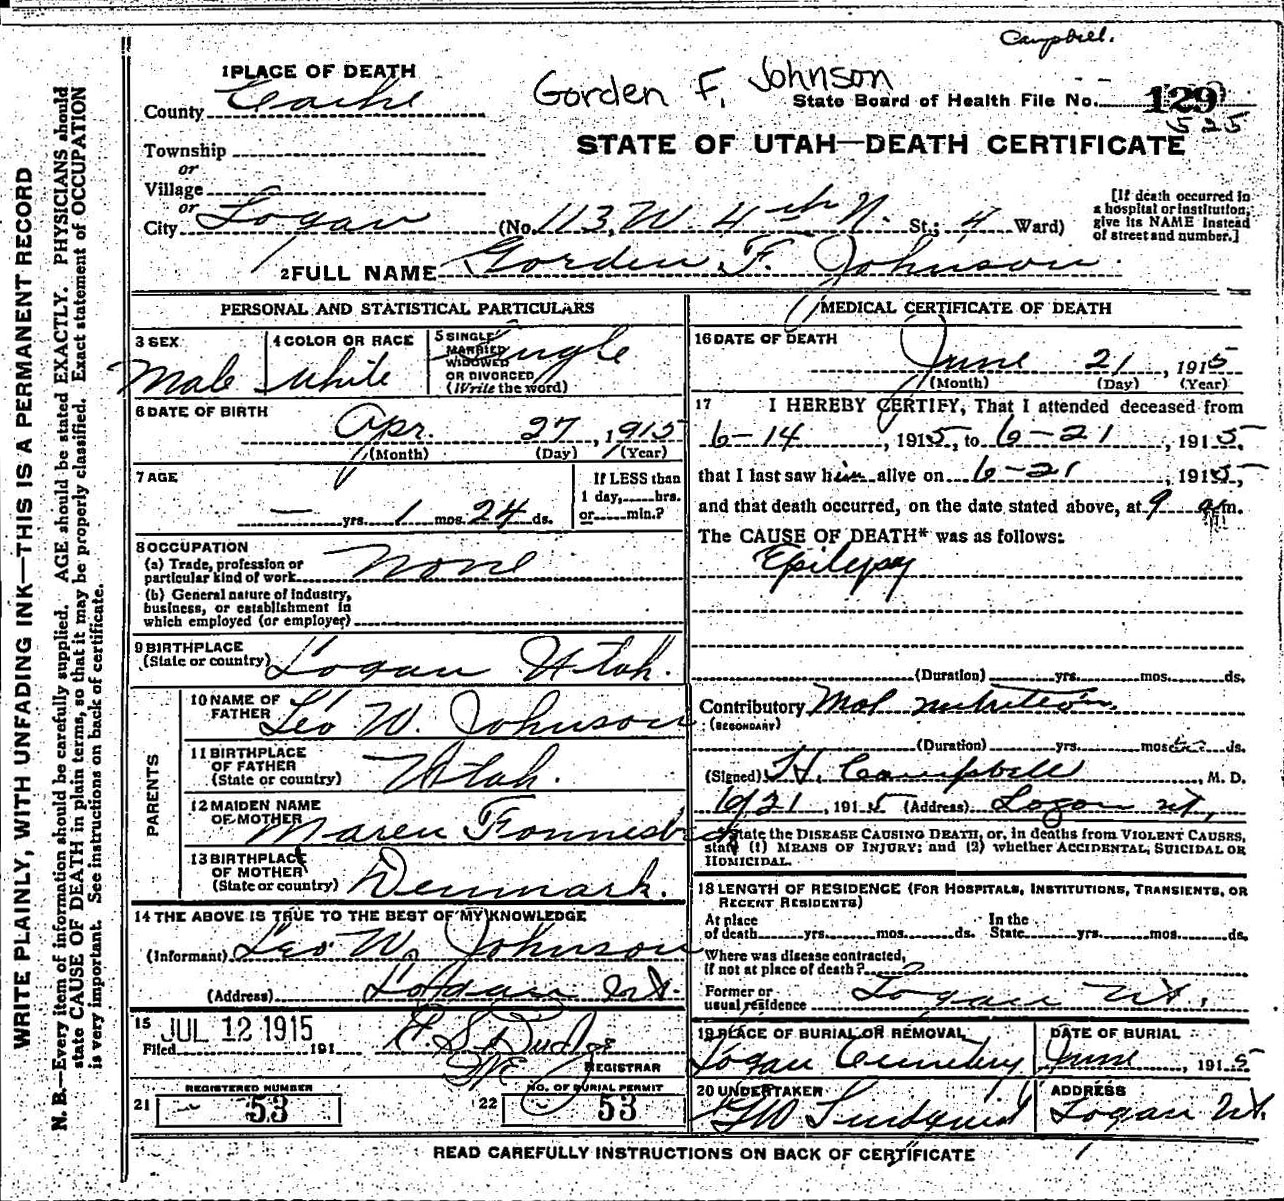 Campbell.
1 PLACE OF DEATH
County Cache
Gorden F. Johnson
State Board of Health File No. 129
525
STATE OF UTAH—DEATH CERTIFICATE
Township
or
Village
or
City Logan (No. 113, W. 4th N. St.; 4 Ward)
[If death occurred in
a hospital or institution,
give its NAME instead
of street and number.]
2 FULL NAME Gorden F. Johnson.
PERSONAL AND STATISTICAL PARTICULARS
3 SEX
Male
4 COLOR OR RACE
White
5 SINGLE
MARRIED
WIDOWED
OR DIVORCED
(Write the word)
Single
6 DATE OF BIRTH
Apr. 27, 1915
(Month) (Day) (Year)
7 AGE
— yrs. 1 mos. 24 ds.
If LESS than
1 day, hrs.
or min.?
8 OCCUPATION
(a) Trade, profession or
particular kind of work None
(b) General nature of industry,
business, or establishment in
which employed (or employer)
9 BIRTHPLACE
(State or country) Logan Utah.
PARENTS
10 NAME OF
FATHER Leo W. Johnson
11 BIRTHPLACE
OF FATHER
(State or country) Utah.
12 MAIDEN NAME
OF MOTHER Maren
13 BIRTHPLACE
OF MOTHER
(State or country) Denmark.
14 THE ABOVE IS TRUE TO THE BEST OF MY KNOWLEDGE
(Informant) Leo W. Johnson
(Address) Logan Ut.
15
Filed JUL 12 1915 191
REGISTRAR
REGISTERED NUMBER
21 53
NO. OF BURIAL PERMIT
22 53
MEDICAL CERTIFICATE OF DEATH
16 DATE OF DEATH
June 21, 1915
(Month) (Day) (Year)
17 I HEREBY CERTIFY, That I attended deceased from
6-14, 1915, to 6-21, 1915,
that I last saw him alive on 6-21, 1915,
and that death occurred, on the date stated above, at 9 am.
The CAUSE OF DEATH* was as follows:
Epilepsy
(Duration) yrs. mos. ds.
Contributory Mal nutrition.
(SECONDARY)
(Duration) yrs. mos. ds.
(Signed) H. Campbell, M. D.
6/21, 1915 (Address) Logan Ut,
*State the DISEASE CAUSING DEATH, or, in deaths from VIOLENT CAUSES,
state (1) MEANS OF INJURY; and (2) whether ACCIDENTAL, SUICIDAL OR
HOMICIDAL.
18 LENGTH OF RESIDENCE (FOR HOSPITALS, INSTITUTIONS, TRANSIENTS, OR
RECENT RESIDENTS)
At place
of death yrs. mos. ds.
In the
State yrs. mos. ds.
Where was disease contracted,
if not at place of death?
Former or
usual residence Logan Ut.
19 PLACE OF BURIAL OR REMOVAL
Logan Cemetery
DATE OF BURIAL
June, 1915
20 UNDERTAKER
GW Lindquist
ADDRESS
Logan Ut.
READ CAREFULLY INSTRUCTIONS ON BACK OF CERTIFICATE
WRITE PLAINLY, WITH UNFADING INK—THIS IS A PERMANENT RECORD
N. B.—Every item of information should be carefully supplied. AGE should be stated EXACTLY. PHYSICIANS should
state CAUSE OF DEATH in plain terms, so that it may be properly classified. Exact statement of OCCUPATION
is very important. See instructions on back of certificate.